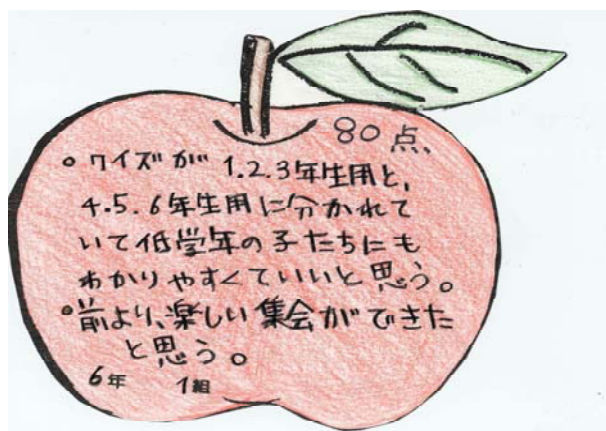 80点、
。クイズが 1.2.3年生用と、
4.5.6年生用に分かれて
いて低学年の子たちにも
わかりやすくていいと思う。
。前より、楽しい集会ができた
と思う。
6年 1組